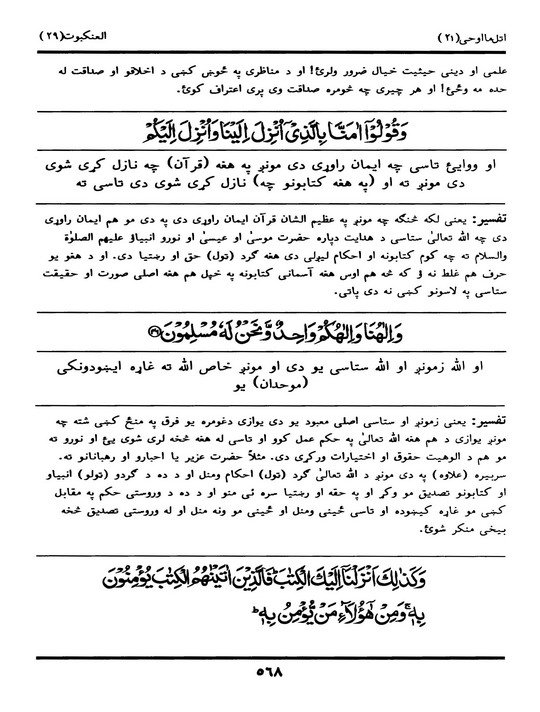 اتل ما اوحی (۲۱)
العنكبوت (۲۹)
علمی او دینی حیثیت خیال ضرور ولرئ! او د مناظری په ځوښ کښی د اخلاقو او صداقت له
حده مه وځئ! او هر چیری چه څومره صداقت وی پری اعتراف کوئ.
وَقُوْلُوْٓا اٰمَنَّا بِالَّذِیْٓ اُنْزِلَ اِلَیْنَا وَاُنْزِلَ اِلَیْكُمْ
او ووایئ تاسی چه ایمان راوړی دی مونږ په هغه (قرآن) چه نازل کړی شوی
دی مونږ ته او (په هغه کتابونو چه) نازل کړی شوی دی تاسی ته
تفسیر: یعنی لکه څنګه چه مونږ په عظیم الشان قرآن ایمان راوړی دی په دی مو هم ایمان راوړی
دی چه الله تعالیٰ ستاسی د هدایت دپاره حضرت موسیٰ او عیسیٰ او نورو انبیاؤ علیهم الصلوٰة
والسلام ته چه کوم کتابونه او احکام لیږلی دی هغه ګرد (تول) حق او رښتیا دی. او د هغو یو
حرف هم غلط نه ؤ که څه هم اوس هغه آسمانی کتابونه په خپل هم هغه اصلی صورت او حقیقت
ستاسی په لاسونو کښی نه دی پاتی.
وَاِلٰهُنَا وَاِلٰهُكُمْ وَاحِدٌ وَّنَحْنُ لَهٗ مُسْلِمُوْنَ ﴿۴۶﴾
او الله زمونږ او الله ستاسی یو دی او مونږ خاص الله ته غاړه ایښودونکی
(موحدان) یو
تفسیر: یعنی زمونږ او ستاسی اصلی معبود یو دی یوازی دغومره یو فرق په منځ کښی شته چه
مونږ یوازی د هم هغه الله تعالیٰ په حکم عمل کوو او تاسی له هغه څخه لری شوی یئ او نورو ته
مو هم د الوهیت حقوق او اختیارات ورکړی دی. مثلاً حضرت عزیر یا احبارو او رهبانانو ته.
سربیره (علاوه) په دی مونږ د الله تعالیٰ ګرد (تول) احکام ومنل او د ده د ګردو (تولو) انبیاو
او کتابونو تصدیق مو وکړ او په حقه او رښتیا سره ئی منو او د ده د وروستی حکم په مقابل
کښی مو غاړه کیښوده او تاسی ځینی ومنل او ځینی مو ونه منل او له وروستی تصدیق څخه
بیخی منکر شوئ.
وَكَذٰلِكَ اَنْزَلْنَآ اِلَیْكَ الْكِتٰبَ ؕ فَالَّذِیْنَ اٰتَیْنٰهُمُ الْكِتٰبَ یُؤْمِنُوْنَ
بِهٖ ۚ وَمِنْ هٰٓؤُلَآءِ مَنْ یُّؤْمِنُ بِهٖ ؕ
۵۶۸